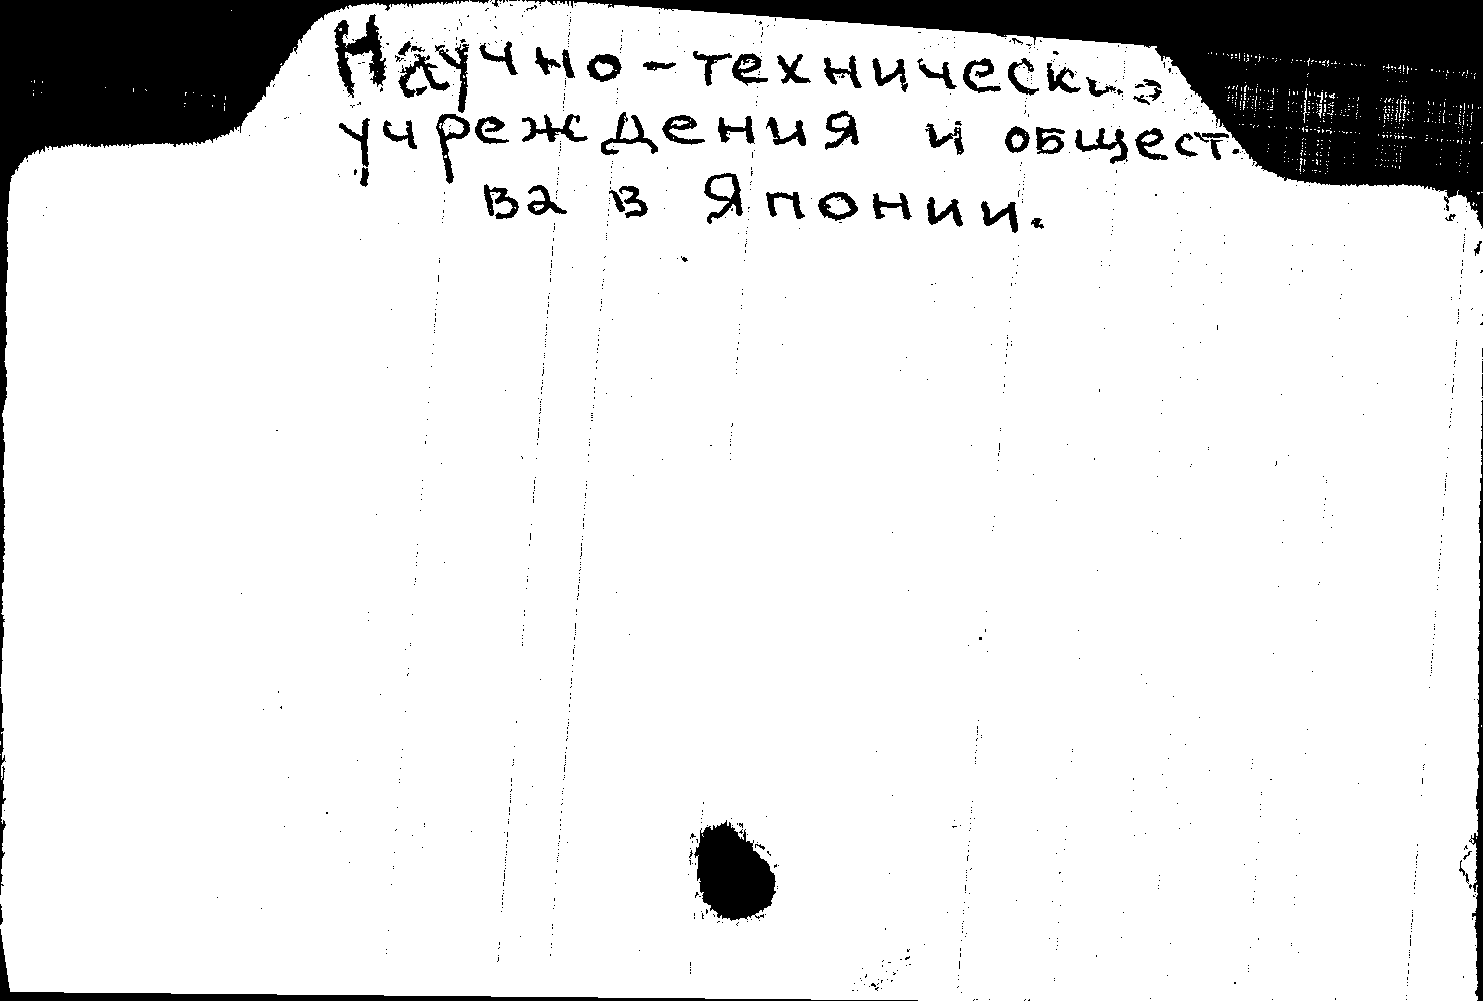 Научно-технические
учреждения и общест-
ва в Японии.